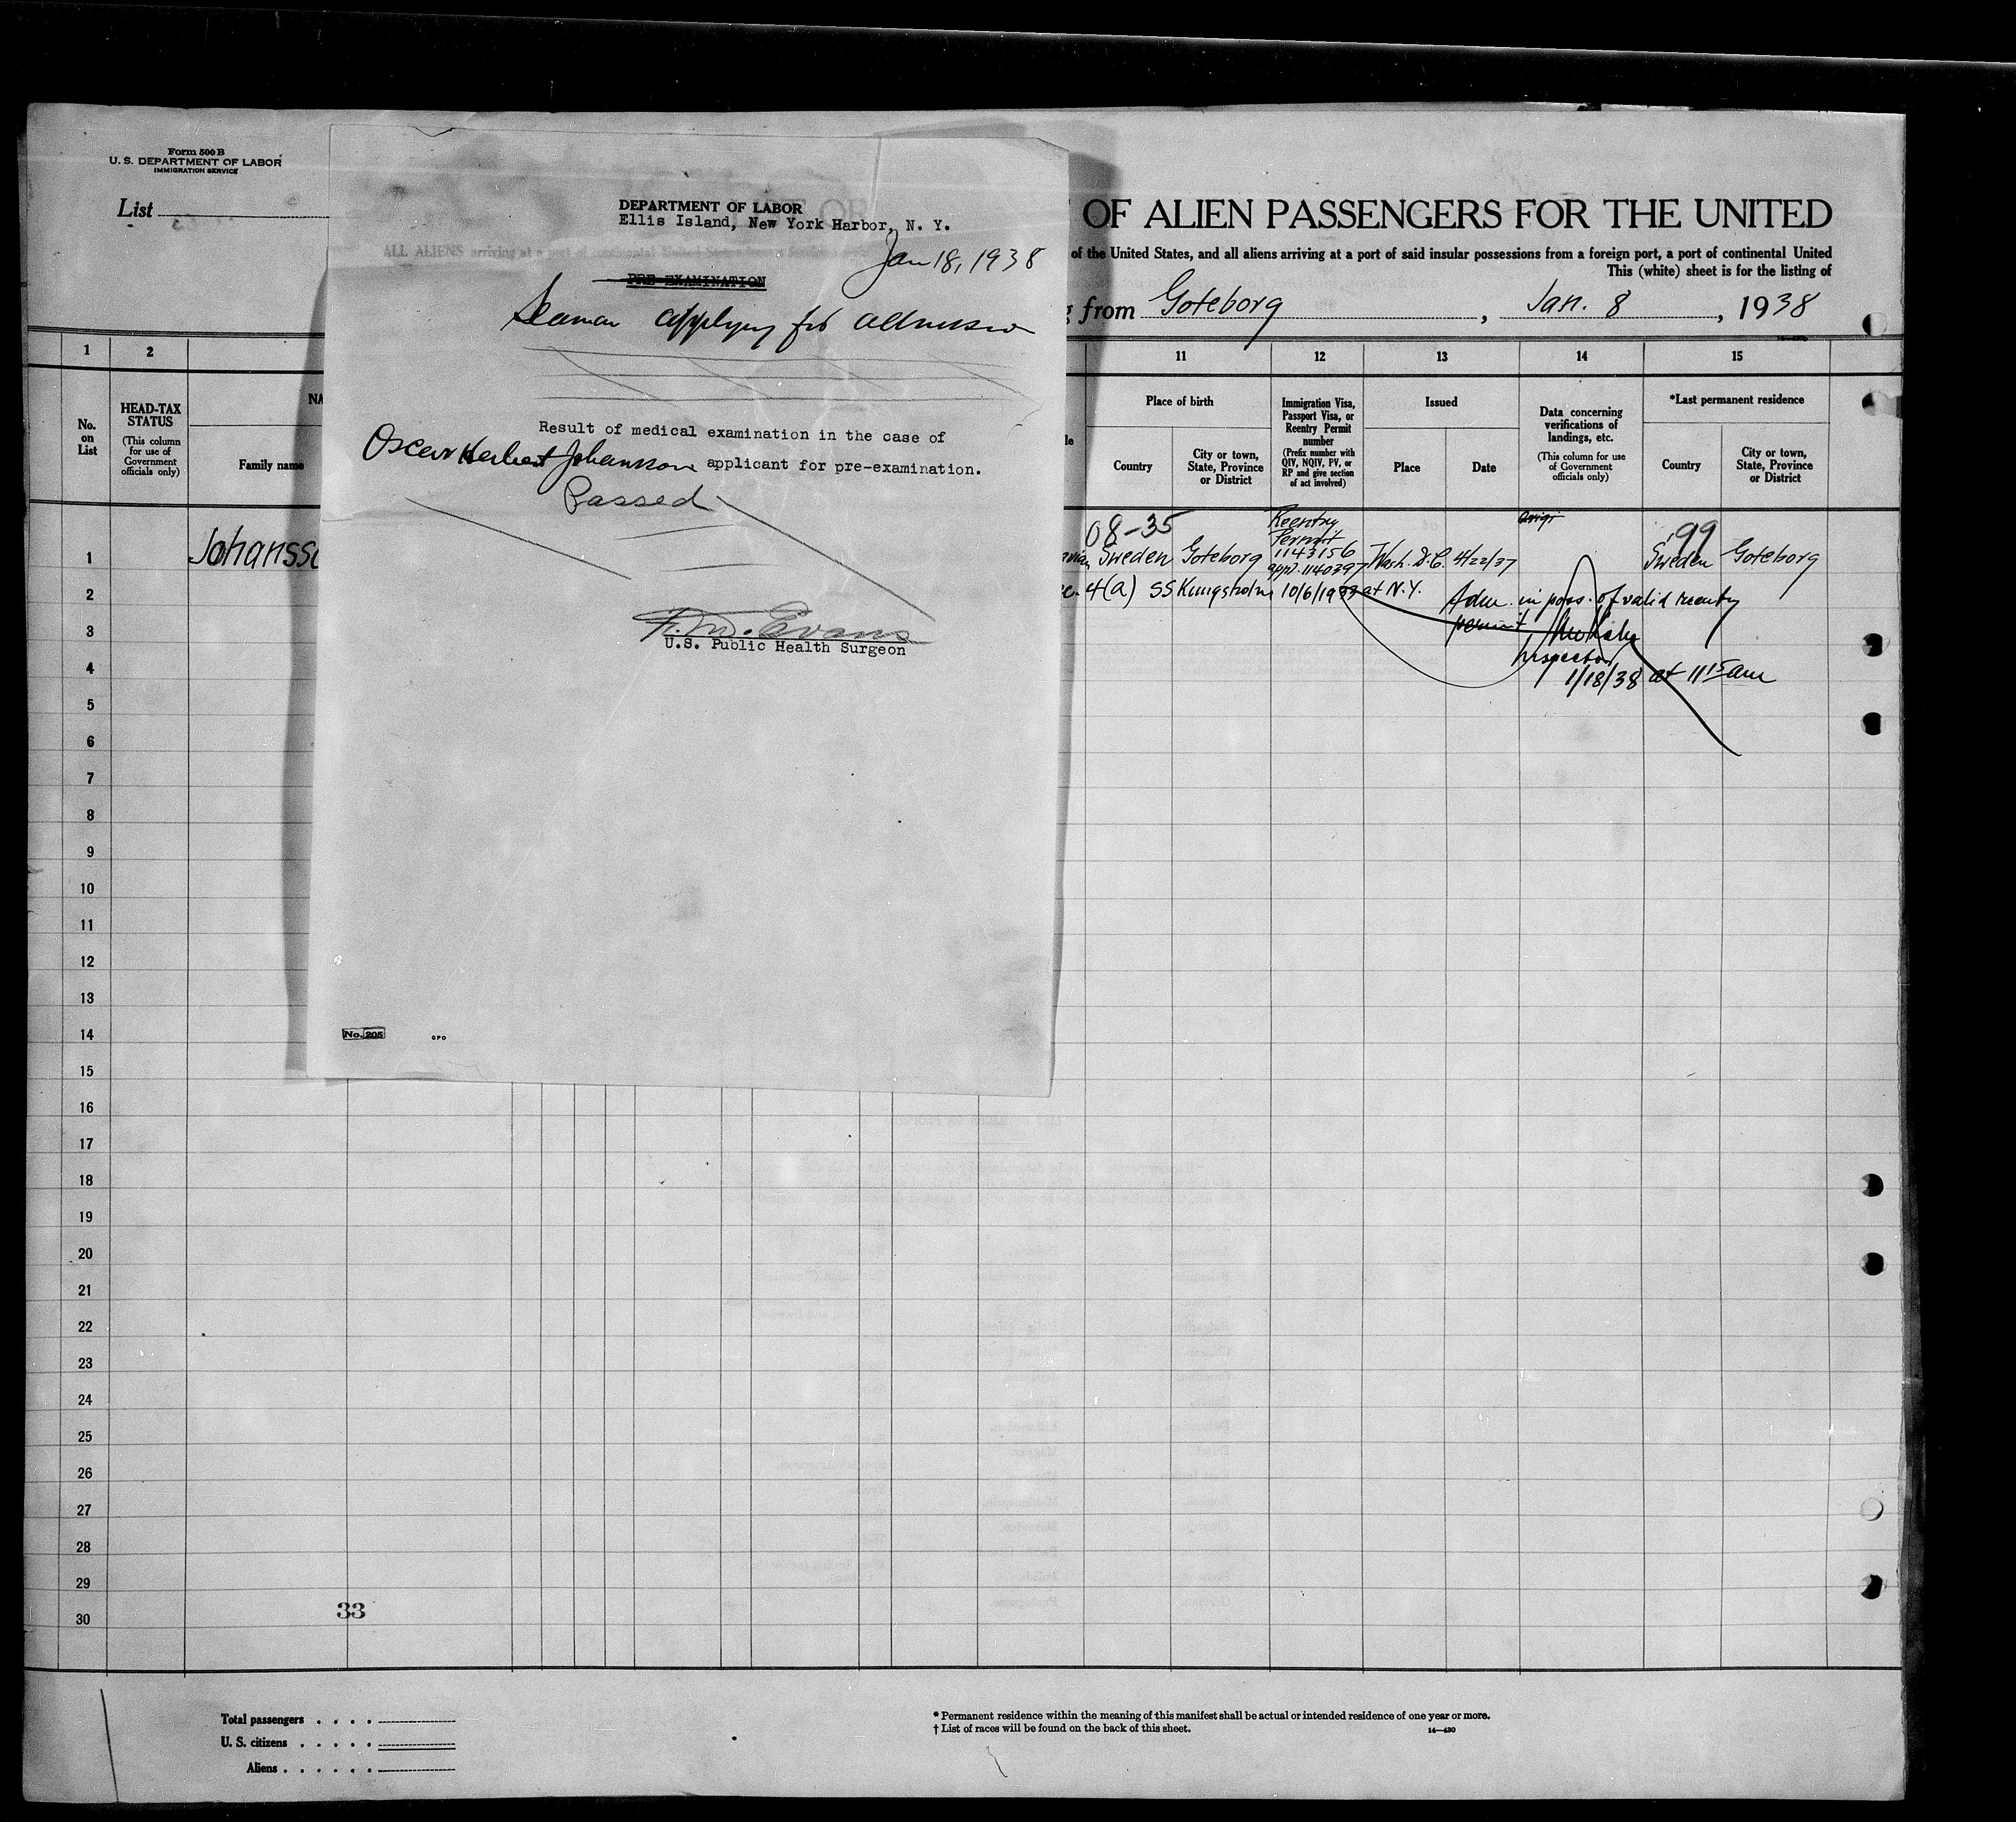 Form 500 B
U. S. DEPARTMENT OF LABOR
IMMIGRATION SERVICE
List
DEPARTMENT OF LABOR
Ellis Island, New York Harbor, N. Y.
Jan 18, 1938
PRE-EXAMINATION
Seaman applying for admission
Result of medical examination in the case of
Oscar Herbert Johansson applicant for pre-examination.
Passed
F. M. Evans
U.S. Public Health Surgeon
No. 205
GPO
OF ALIEN PASSENGERS FOR THE UNITED
ALL ALIENS arriving at a port of continental United States
of the United States, and all aliens arriving at a port of said insular possessions from a foreign port, a port of continental United
This (white) sheet is for the listing of
from Goteborg, Jan. 8, 1938
1 2 11 12 13 14 15
No. on List
HEAD-TAX STATUS
(This column for use of Government officials only)
NA
Family name
Place of birth
Country
City or town, State, Province or District
Immigration Visa, Passport Visa, or Reentry Permit number
(Prefix number with QIV, NQIV, PV, or RP and give section of act involved)
Issued
Place
Date
Data concerning verifications of landings, etc.
(This column for use of Government officials only)
*Last permanent residence
Country
City or town, State, Province or District
08-35
Reentry
Permit
99
1 Johansso Sweden Goteborg 1143156 Wash. D.C. 4/22/37 Sweden Goteborg
appl. 1140397
2 4(a) SS Kungsholm 10/6/1937 at N.Y. Adm. in poss. of valid reentry
3 permit
Inspector
4 1/18/38 at 11 15 am
5
6
7
8
9
10
11
12
13
14
15
16
17
18
19
20
21
22
23
24
25
26
27
28
29
33
30
Total passengers . . . .
U. S. citizens . . . . .
Aliens . . . . . .
* Permanent residence within the meaning of this manifest shall be actual or intended residence of one year or more.
† List of races will be found on the back of this sheet.
14—430